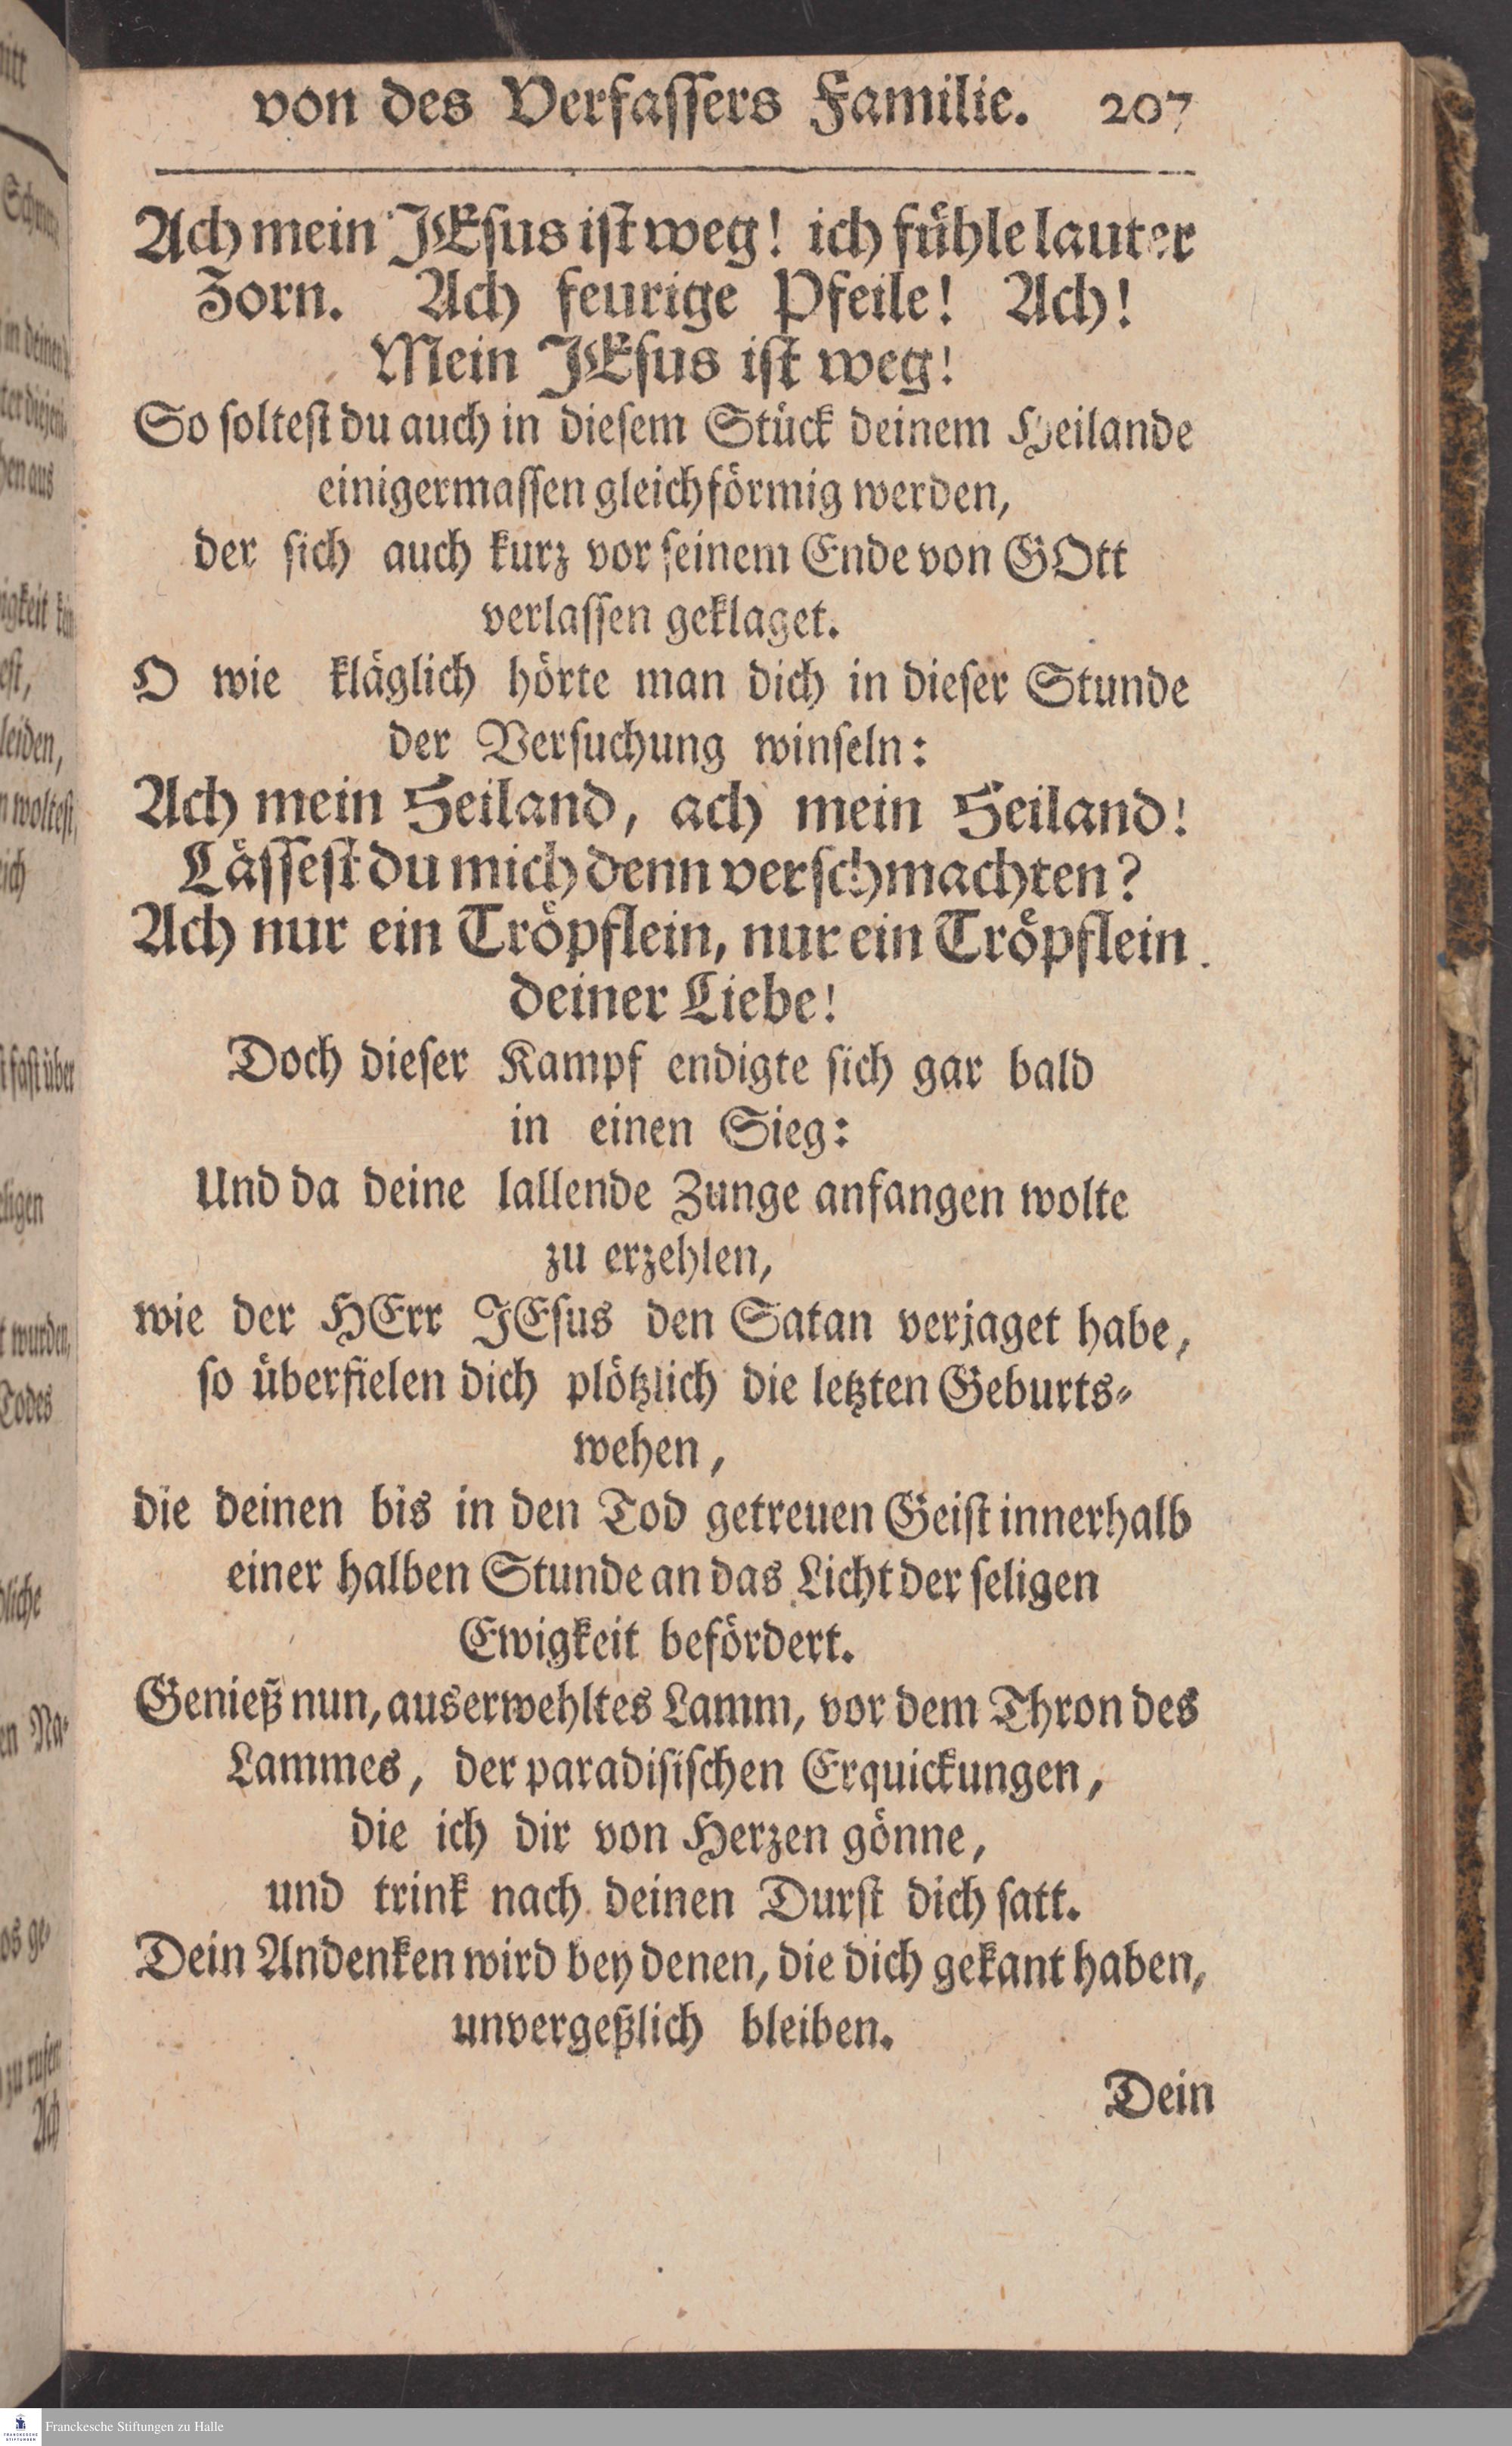 von des Verfaſſers Familie. 207
Ach mein JEſus iſt weg! ich fühle lauter
Zorn. Ach feurige Pfeile! Ach!
Mein JEſus iſt weg!
So ſolteſt du auch in dieſem Stück deinem Heilande
einigermaſſen gleichförmig werden,
der ſich auch kurz vor ſeinem Ende von GOtt
verlaſſen geklaget.
O wie kläglich hörte man dich in dieſer Stunde
der Verſuchung winſeln:
Ach mein Heiland, ach mein Heiland!
Läſſeſt du mich denn verſchmachten?
Ach nur ein Tröpflein, nur ein Tröpflein
deiner Liebe!
Doch dieſer Kampf endigte ſich gar bald
in einen Sieg:
Und da deine lallende Zunge anfangen wolte
zu erzehlen,
wie der HErr JEſus den Satan verjaget habe,
ſo überfielen dich plötzlich die letzten Geburts-
wehen,
die deinen bis in den Tod getreuen Geiſt innerhalb
einer halben Stunde an das Licht der ſeligen
Ewigkeit befördert.
Genieß nun, auserwehltes Lamm, vor dem Thron des
Lammes, der paradiſiſchen Erquickungen,
die ich dir von Herzen gönne,
und trink nach deinen Durſt dich ſatt.
Dein Andenken wird bey denen, die dich gekant haben,
unvergeßlich bleiben.
Dein
Franckesche Stiftungen zu Halle